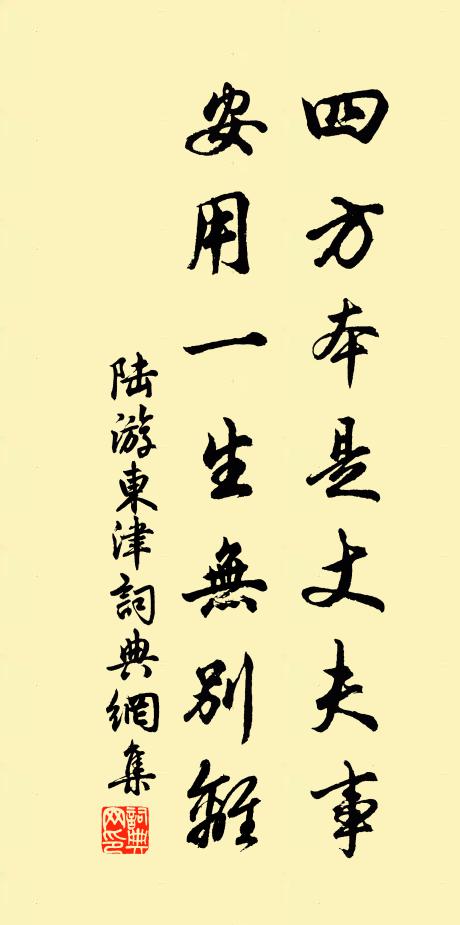 四方本是丈夫事
安用一生無別離
陆游東津詞典網集
詞典网印